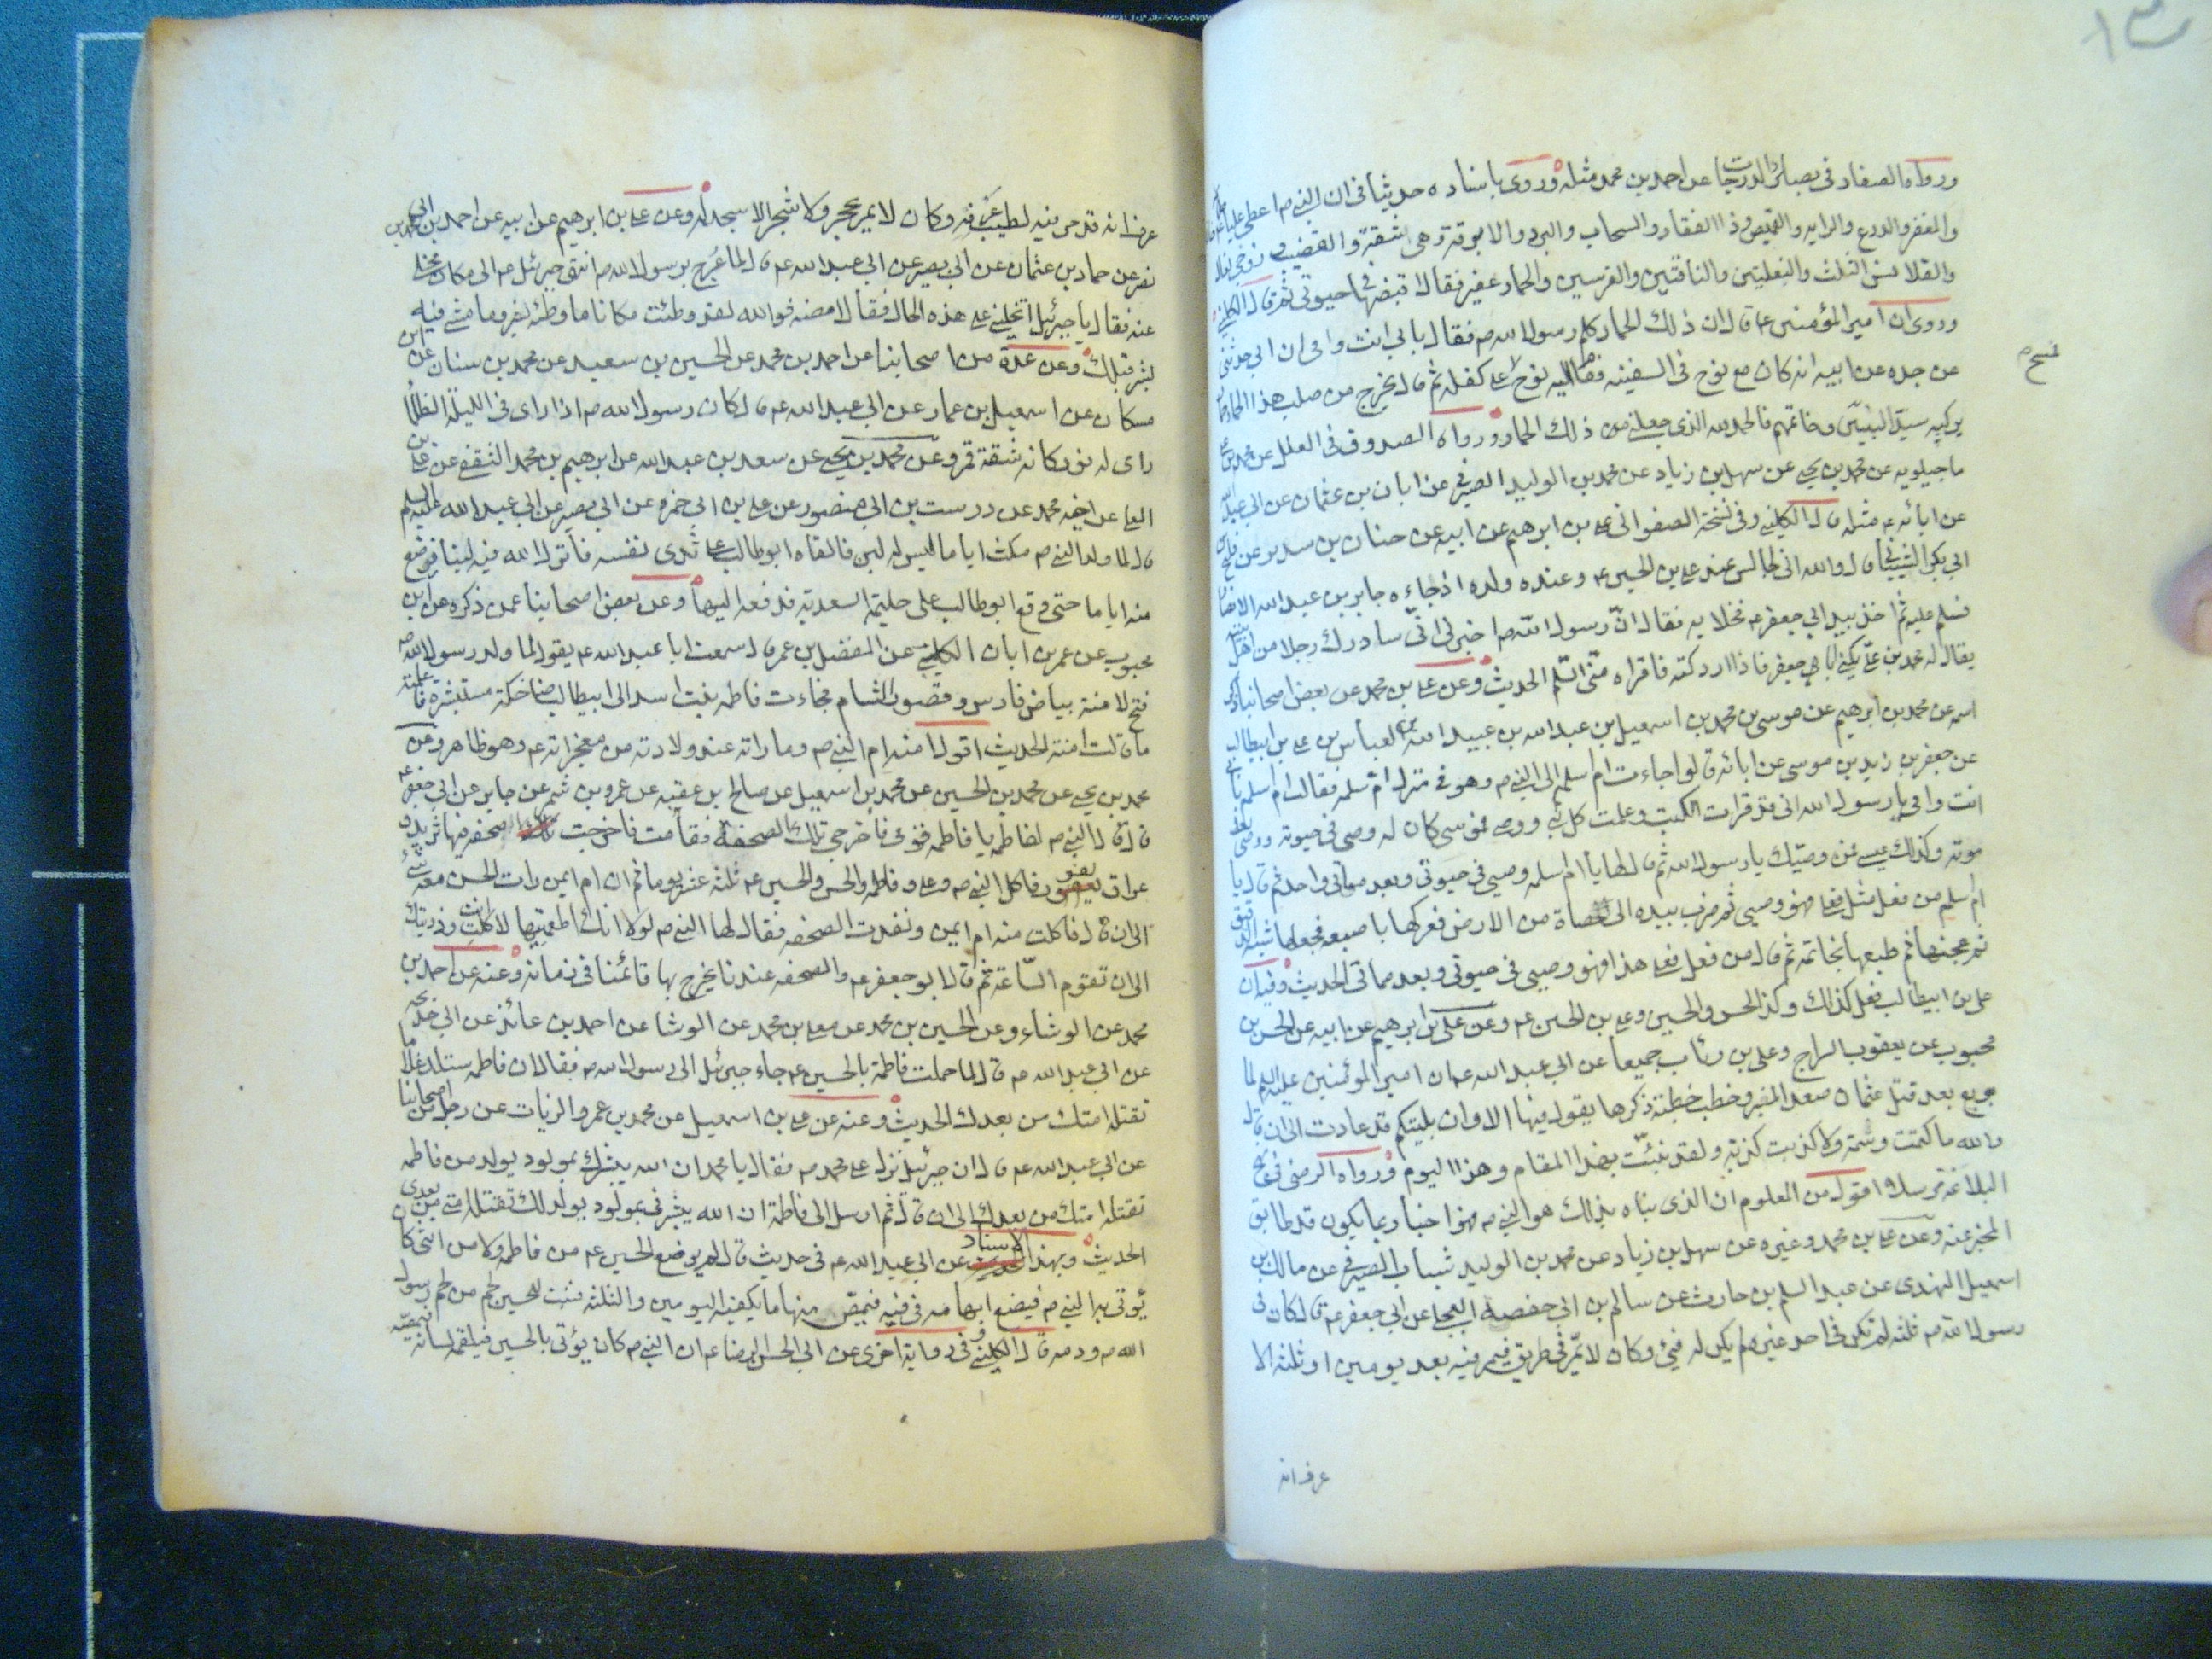 ١٣
ورواه الصفار في بصائر الدرجات عن احمد بن محمد مثله وروى باسناده حديثا في ان النبي ص اعطى عليا
والمغفر والدرع والرايه والقميص وذا الفقار والسحاب والبرد والابرقة وهى شقة والقضيب
والقلانس الثلث والنعلين والناقتين والفرسين والحمار عفير فقال اقبضها في حيوتى ثم قال الكلينى
وروى ان امير المؤمنين ع قال ان ذلك الحمار كلم رسول الله ص فقال بابى انت وامى ان ابى حدثنى
عن جده عن ابيه انه كان مع نوح في السفينه فقام اليه نوح ع كفله ثم قال يخرج من صلب هذا الحمار
مسح
يركبه سيد النبيين وخاتمهم فالحمد لله الذى جعلنى ذلك الحمار ورواه الصدوق في العلل عن محمد بن على
ماجيلويه عن محمد بن يحيى عن سهل بن زياد عن محمد بن الوليد الصيرفى عن ابان بن عثمان عن ابى عبد الله
عن ابائه ع مثله قال الكلينى وفى نسخة الصفوانى على بن ابرهيم عن ابيه عن حنان بن سدير عن فليح بن
ابى بكر الشيبانى قال والله انى لجالس عند على بن الحسين ع وعنده ولده اذ جاءه جابر بن عبد الله الانصارى
فسلم عليه ثم اخذ بيد ابى جعفر ع فخلا به فقال ان رسول الله ص اخبرنى انى سادرك رجلا من اهل بيته
يقال له محمد بن على يكنى ابا جعفر فاذا ادركته فاقراه منى السلم الحديث وعن على بن محمد عن بعض اصحابنا ذكر
اسمه عن محمد بن ابرهيم عن موسى بن محمد بن اسمعيل بن عبد الله بن عبيد الله بن العباس بن على بن ابيطالب
عن جعفر بن زيد بن موسى عن ابائه قالوا جاءت ام اسلم الى النبى ص وهو في منزل ام سلمه فقالت ام اسلم بابى
انت وامى يا رسول الله انى قد قرات الكتب وعلمت كل نبى ووصى فموسى كان له وصى في حيوته ووصى بعد
موته وكذلك عيسى فمن وصيك يا رسول الله ثم قال لها يا ام اسلم وصيى في حيوتى وبعد مماتى واحد ثم قال يا
ام اسلم من فعل مثل فعلى فهو وصيى ثم ضرب بيده الى حصاة من الارض ففركها باصبعه فجعلها شبه الدقيق
ثم عجنها ثم طبعها بخاتمه ثم قال من فعل فعلى هذا فهو وصيى في حيوتى وبعد مماتى الحديث وفيه ان
على بن ابيطالب فعل كذلك وكذا الحسن والحسين وعلى بن الحسين ع وعن على بن ابرهيم عن ابيه عن الحسن بن
محبوب عن يعقوب السراج وعلى بن رئاب جميعا عن ابى عبد الله ع ان امير المؤمنين عليه السلم لما
بويع بعد قتل عثمان صعد المنبر وخطب خطبة ذكرها يقول فيها الا وان بليتكم قد عادت الى ان قال
والله ما كتمت وشمة ولا كذبت كذبة ولقد نبئت بهذا المقام وهذا اليوم ورواه الرضى في نهج
البلاغة مرسلا اقول من المعلوم ان الذى نباه بذلك هو النبى ص فهو اخبار بما يكون قد طابق
المخبر عنه وعن على بن محمد وغيره عن سهل بن زياد عن محمد بن الوليد شباب الصيرفى عن مالك بن
اسمعيل النهدى عن عبد السلم بن حارث عن سالم بن ابى حفصة العجلى عن ابى جعفر ع قال كان فى
رسول الله ص ثلثه لم تكن في احد غيره لم يكن له فئ وكان لا يمر في طريق فيمر فيه بعد يومين او ثلثه الا
عرف انه
عرف انه قد مر فيه لطيب عرفه وكان لا يمر بحجر ولا شجر الا سجد له وعن على بن ابرهيم عن ابيه عن احمد بن محمد بن ابى
نصر عن حماد بن عثمان عن ابى بصير عن ابى عبد الله ع قال لما عرج برسول الله ص انتهى جبرئيل ع الى مكان فخلى
عنه فقال يا جبرئيل اتخلينى على هذه الحال فقال امضه فوالله لقد وطئت مكانا ما وطئه بشر وما مشى فيه
بشر قبلك وعن عدة من اصحابنا عن احمد بن محمد عن الحسين بن سعيد عن محمد بن سنان عن ابن
مسكان عن اسمعيل بن عمار عن ابى عبد الله ع قال كان رسول الله ص اذا راى في الليلة الظلماء
راى له نور كانه شقة قمر وعن محمد بن يحيى عن سعد بن عبد الله عن ابرهيم بن محمد الثقفى عن على بن
المعلى عن اخيه محمد عن درست بن ابى منصور عن على بن ابى حمزه عن ابى بصير عن ابى عبد الله عليه السلم
قال لما ولد النبى ص مكث اياما ليس له لبن فالقاه ابو طالب على ثدى نفسه فانزل الله فيه لبنا فرضع
منه اياما حتى وقع ابو طالب على حليمة السعدية فدفعه اليها وعن بعض اصحابنا عمن ذكره عن ابن
محبوب عن عمر بن ابان الكلبى عن المفضل بن عمر قال سمعت ابا عبد الله ع يقول لما ولد رسول الله ص
فتح لامنة بياض فارس وقصور الشام فجاءت فاطمه بنت اسد الى ابيطالب ضاحكة مستبشرة فاعلمته
ما قالت امنة الحديث اقول امنه ام النبى ص وما راته عند ولادته من معجزاته ع وهو ظاهر وعن
محمد بن يحيى عن محمد بن الحسين عن محمد بن اسمعيل عن صالح بن عقبه عن عمرو بن شمر عن جابر عن ابى جعفر ع
قال قال النبى ص لفاطمه يا فاطمه قومى فاخرجى تلك الصحفة فقامت فاخرجت صحفه فيها ثريد و
عراق يفور فاكل النبى ص وعلى وفاطمه والحسن والحسين ع ثلثة عشر يوما ثم ان ام ايمن رات الحسين معه شئ
الى ان قال فاكلت منه ام ايمن ونفدت الصحفه فقال لها النبى ص لولا انك اطعمتيها لاكلت انت وذريتك
الى ان تقوم الساعة ثم قال ابو جعفر ع والصحفه عندنا يخرج بها قائمنا في زمانه وعنه عن احمد بن
محمد عن الوشاء وعن الحسين بن محمد عن معلى بن محمد عن الوشا عن احمد بن عائذ عن ابى خديجه
عن ابى عبد الله ع قال لما حملت فاطمة بالحسين ع جاء جبرئيل الى رسول الله ص فقال ان فاطمه ستلد غلاما
تقتله امتك من بعدك الحديث وعنه عن على بن اسمعيل عن محمد بن عمرو الزيات عن رجل من اصحابنا
عن ابى عبد الله ع قال ان جبرئيل نزل على محمد ص فقال يا محمد ان الله يبشرك بمولود يولد من فاطمه
تقتله امتك من بعدك الى ان قال ثم ارسل الى فاطمة ان الله يبشرنى بمولود يولد لك تقتله امتى من بعدى
الحديث وبهذا الاسناد عن ابى عبد الله ع في حديث قال لم يرضع الحسين ع من فاطمه ولا من انثى كان
يؤتى به النبى ص فيضع ابهامه في فيه فيمص منها ما يكفيه اليومين والثلثة فنبت لحم الحسين من لحم رسول
الله ص ودمه قال الكلينى وفى رواية اخرى عن ابى الحسن الرضا ع ان النبى ص كان يؤتى بالحسين فيلقمه لسانه فيمصه